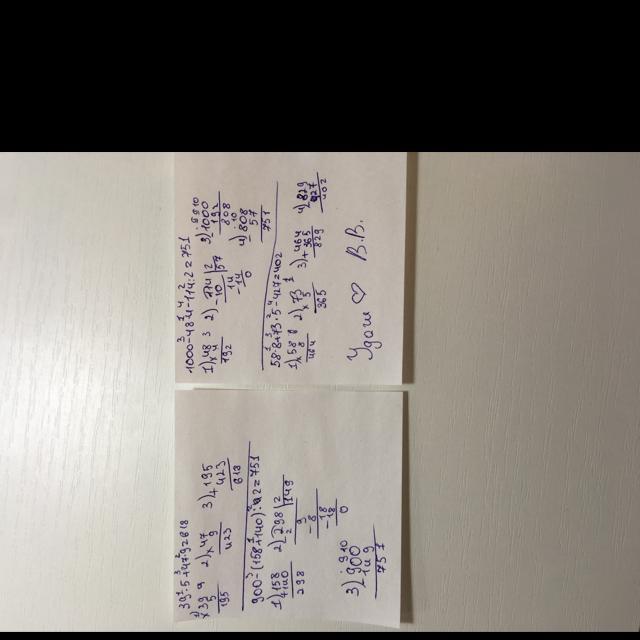 1000-48·4-114:2=751
1) 48 2) 114 | 2 3) 1000
× 4 -10 | 57 192
192 14 808
-14 4) 808
0 57
751
58·8+73·5-427=402
1) × 58 2) × 73 3) + 464 4) 829
8 5 365 427
464 365 829 402
Удачи ♡ В.В.
39·5+47·9=618
1) × 39 2) × 47 3) + 195
5 9 423
195 423 618
900-(158+140):2=751
1) + 158 2) 298 | 2
140 2 | 149
298 9
-8
18
-18
0
3) 900
149
751